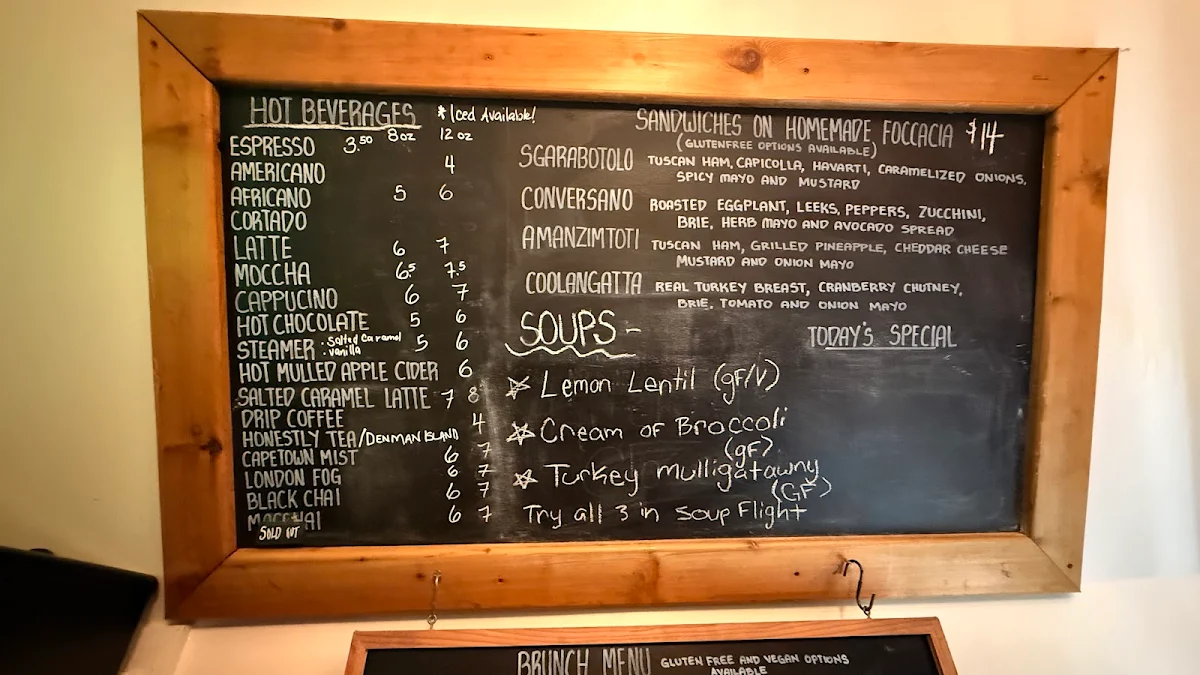 HOT BEVERAGES *Iced Available!
8oz 12oz
ESPRESSO 3.50
AMERICANO 4
AFRICANO 5 6
CORTADO
LATTE 6 7
MOCCHA 6.5 7.5
CAPPUCINO 6 7
HOT CHOCOLATE 5 6
STEAMER •Salted Caramel 5 6
•vanilla
HOT MULLED APPLE CIDER 6
SALTED CARAMEL LATTE 7 8
DRIP COFFEE 4
HONESTLY TEA/DENMAN ISLAND
CAPETOWN MIST 6 7
LONDON FOG 6 7
BLACK CHAI 6 7
6 7
SOLD OUT
SANDWICHES ON HOMEMADE FOCCACIA $14
(GLUTENFREE OPTIONS AVAILABLE)
SGARABOTOLO TUSCAN HAM, CAPICOLLA, HAVARTI, CARAMELIZED ONIONS,
SPICY MAYO AND MUSTARD
CONVERSANO ROASTED EGGPLANT, LEEKS, PEPPERS, ZUCCHINI,
BRIE, HERB MAYO AND AVOCADO SPREAD
AMANZIMTOTI TUSCAN HAM, GRILLED PINEAPPLE, CHEDDAR CHEESE
MUSTARD AND ONION MAYO
COOLANGATTA REAL TURKEY BREAST, CRANBERRY CHUTNEY,
BRIE, TOMATO AND ONION MAYO
SOUPS-
☆ Lemon Lentil (gF/V)
☆ Cream of Broccoli
(gF)
☆ Turkey mulligatawny
(GF)
Try all 3 in Soup Flight
TODAY'S SPECIAL
BRUNCH MENU GLUTEN FREE AND VEGAN OPTIONS
AVAILABLE